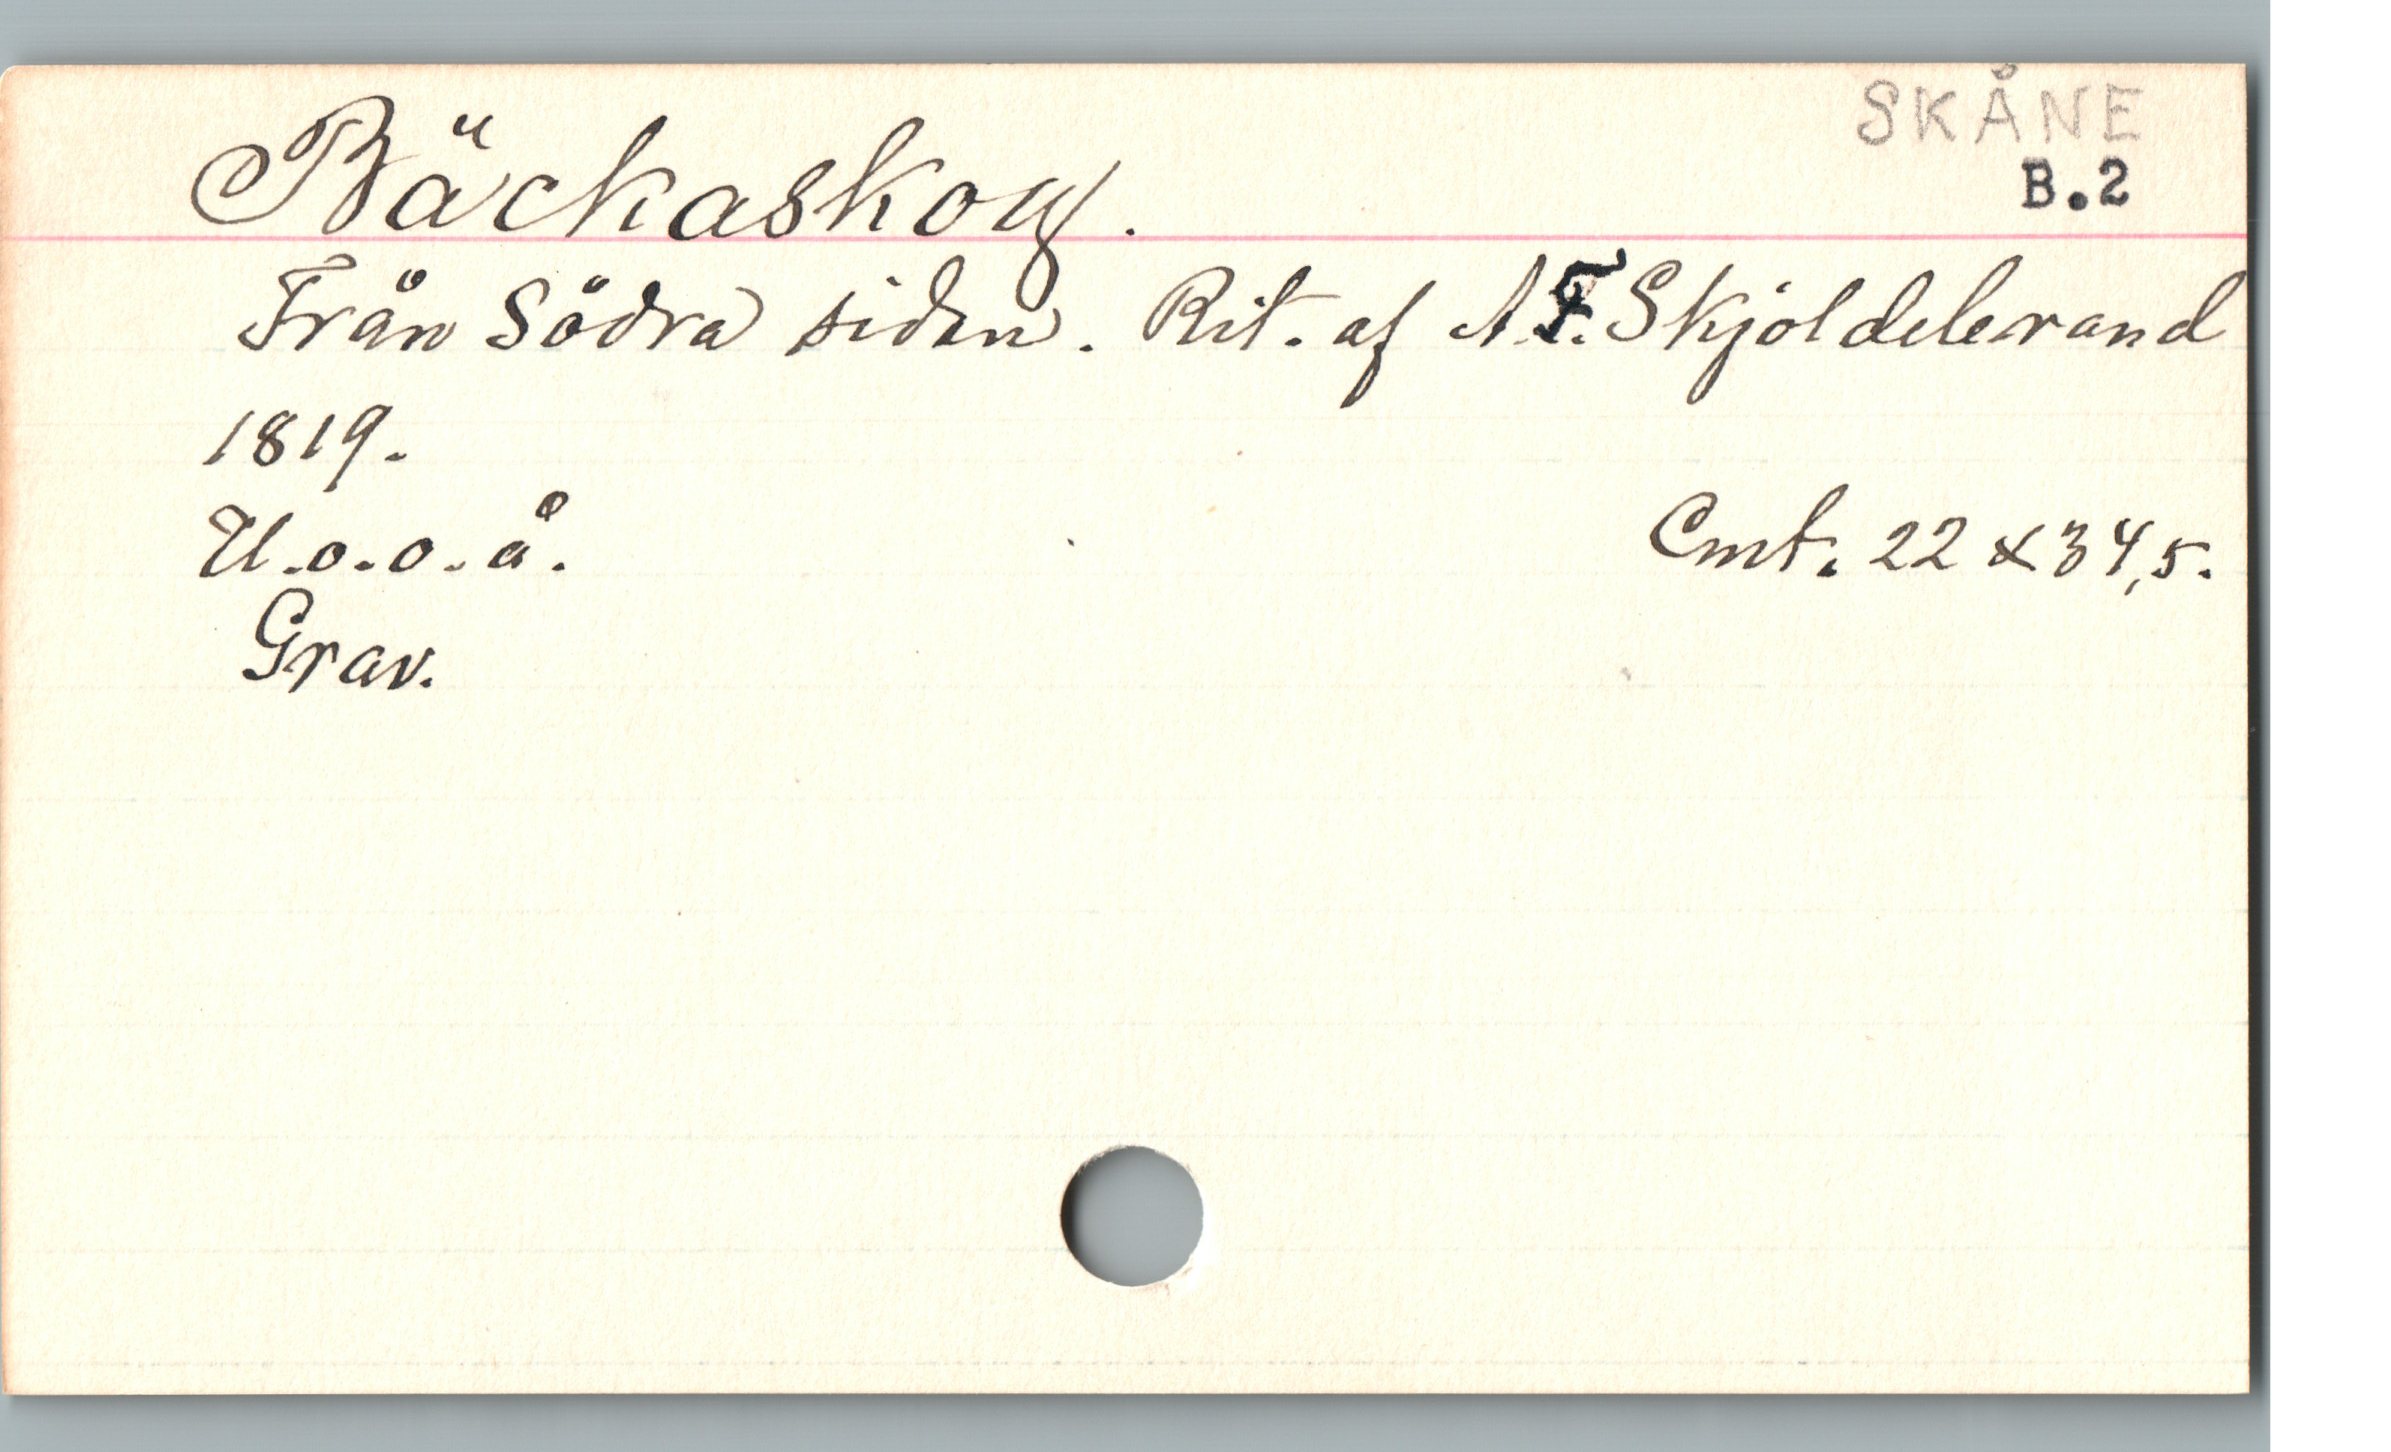 SKÅNE
B.2
Bäckaskog.
Från Södra sidan. Rit. af A.F. Skjöldebrand
1819.
U.o.o.å. Cmt. 22 x 34,5.
Grav.